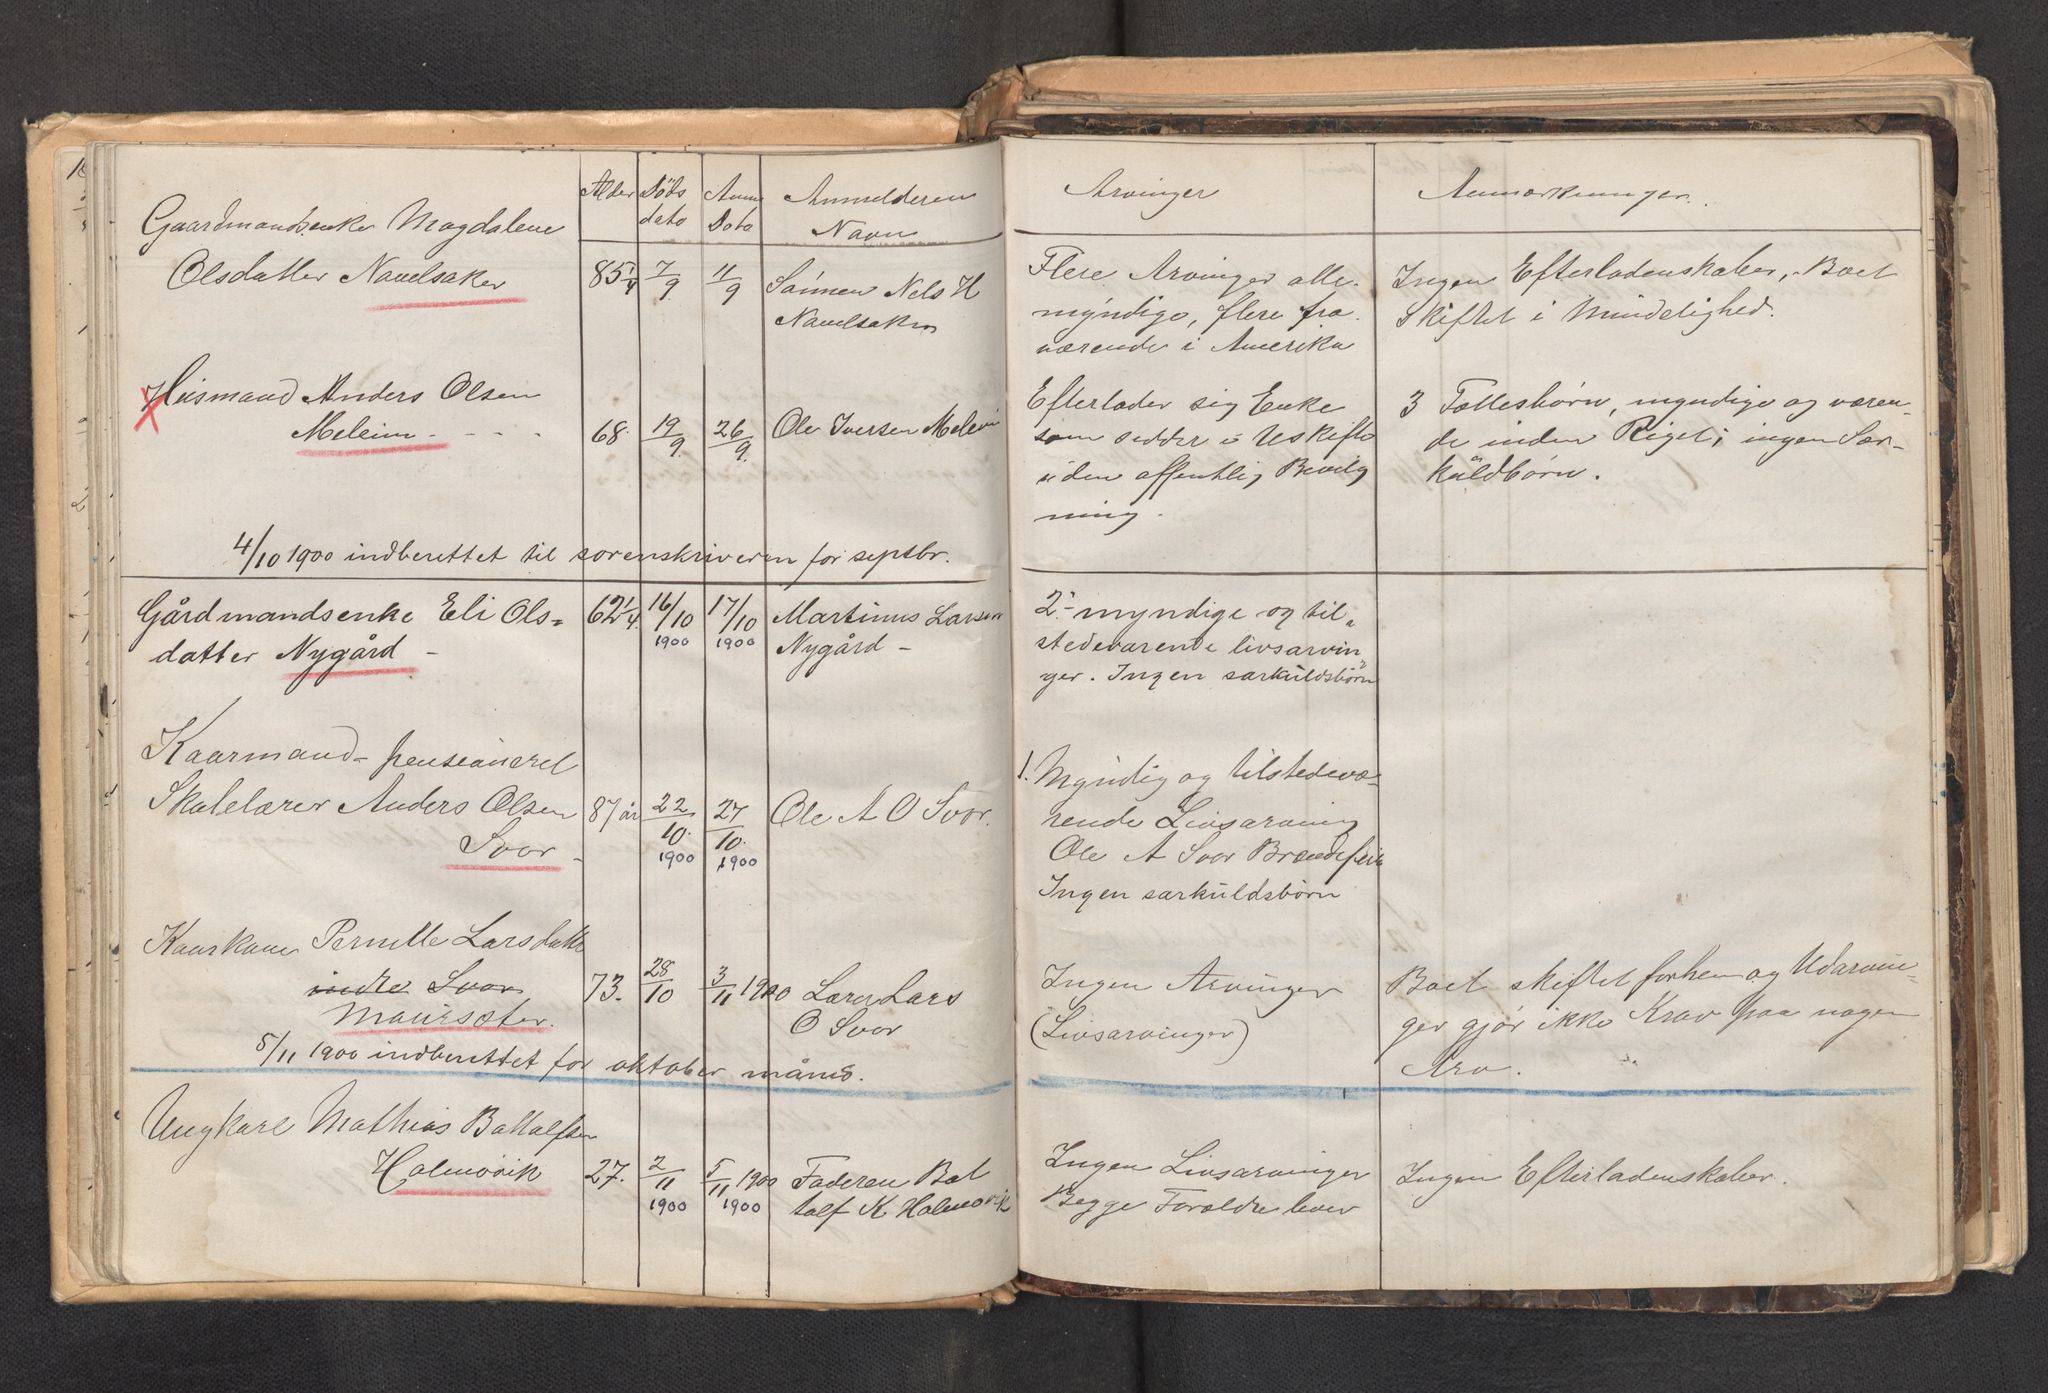 Alder Döds Anm Anmelderens Arvinger Anmærkninger.
dato Dato Navn
Gaardmandsenke Magdalene
Olsdatter Navelsaker 85 1/4 7/9 11/9 Sönnen Nels H
Navelsaker
Flere Arvinger alle
myndige, flere fra
værende i Amerika
Ingen Efterladenskaber, Boet
Skiftet i Mindelighed.
Husmand Anders Olsen
Meleim 68. 19/9 26/9. Ole Iversen Meleim
Efterlader sig Enke
som sidder i Uskifte
uden offentlig Bevilg
ning.
3 Fællesbørn, myndige og væren-
de inden Riget; ingen Sær-
küldbørn.
4/10 1900 indberettet til sorenskriveren for septbr.
Gårdmandsenke Eli Ols=
datter Nygård - 62 1/4. 16/10 1900 17/10 1900 Martinus Larsen
Nygård -
2 myndige og til=
stedeværende livsarvin
ger. Ingen særkuldsbørn
Kaarmand - pensioneret
Skolelærer Anders Olsen 87 år 22/10. 1900 27/10. 1900 Ole A O Svor.
Svor -
1. Myndig og tilstedevæ-
rende Livsarving
Ole A Svor
Ingen særkuldsbørn
Kaarkone Pernille Larsdatter
indre Svor 73. 28/10 3/11 1900 Lærer Lars
Maursæter. O Svor
Ingen Arvinger
(Livsarvinger)
Boet skiftet forhen og Udarvin-
ger gjør ikke Krav paa nogen
Arv.
5/11 1900 indberettet for oktober måned.
Ungkarl Mathias Batalfsen
Holmövik 27. 2/11 1900 5/11 1900 1900 Faderen Bat
talf K Holmövik
Ingen Livsarvinger
Begge Forældre lever
Ingen Efterladenskaber.